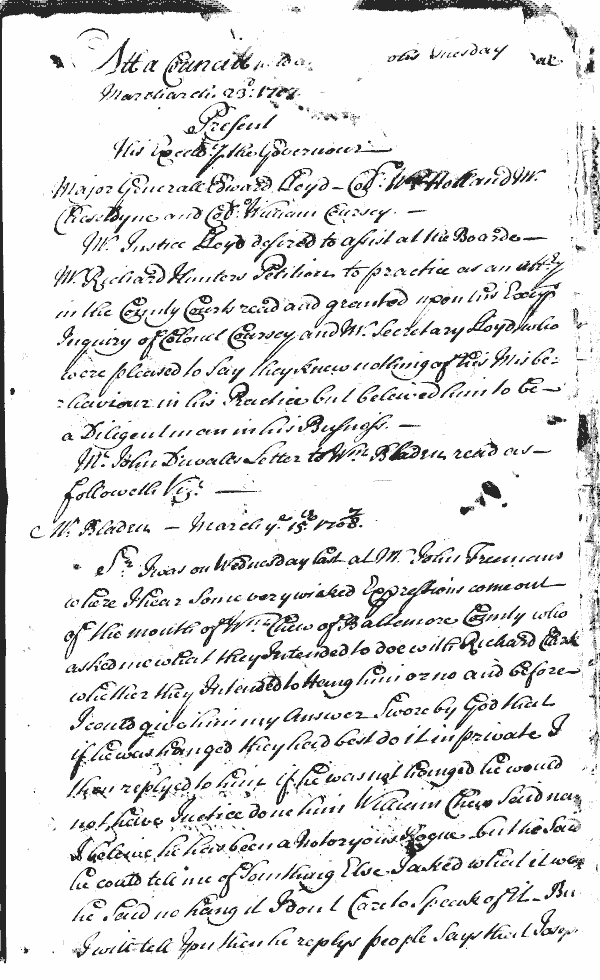 Att a Council
March die 23d: 1707
Present
His Excelly. the Governour
Major Generall Edward Lloyd – Col: Wm Holland Mr
Cheseldyne and Col: William Coursey. —
Mr. Justice Lloyd desired to assist at the Boarde —
Mr Richard Hunters Petition to practice as an atty
in the County Courts read and granted upon his Excys
Inquiry of Colonel Coursey and Mr. Secretary Lloyd, who
were pleased to say they knew nothing of his Misbe-
haviour in his Practice but beleived him to be —
a Diligent man in his Business. —
Mr. John Duvalls Letter to Wm. Bladen read as —
followeth Vizt. —
Mr. Bladen — March ye. 15th 1707/8.
Sr. I was on Wednesday last at Mr. John Freemans
where I hear Some very wicked Expressions come out
of the mouth of Wm. Chew of Baltemore County who
asked me what they Intended to doe with Richard Clark
whether they Intended to Hang him or no and before
I could give him my Answer Swore by God that
if he was hanged they had best do it in private I
then replyed to him if he was not hanged he would
not have Justice done him William Chew Said nay
I beleive he has been a Notoryous Rogue but he Said
he could tell me of Something Else I asked what it was
he Said no hang it I dont Care to Speak of it
I will tell you then he replys people Says that